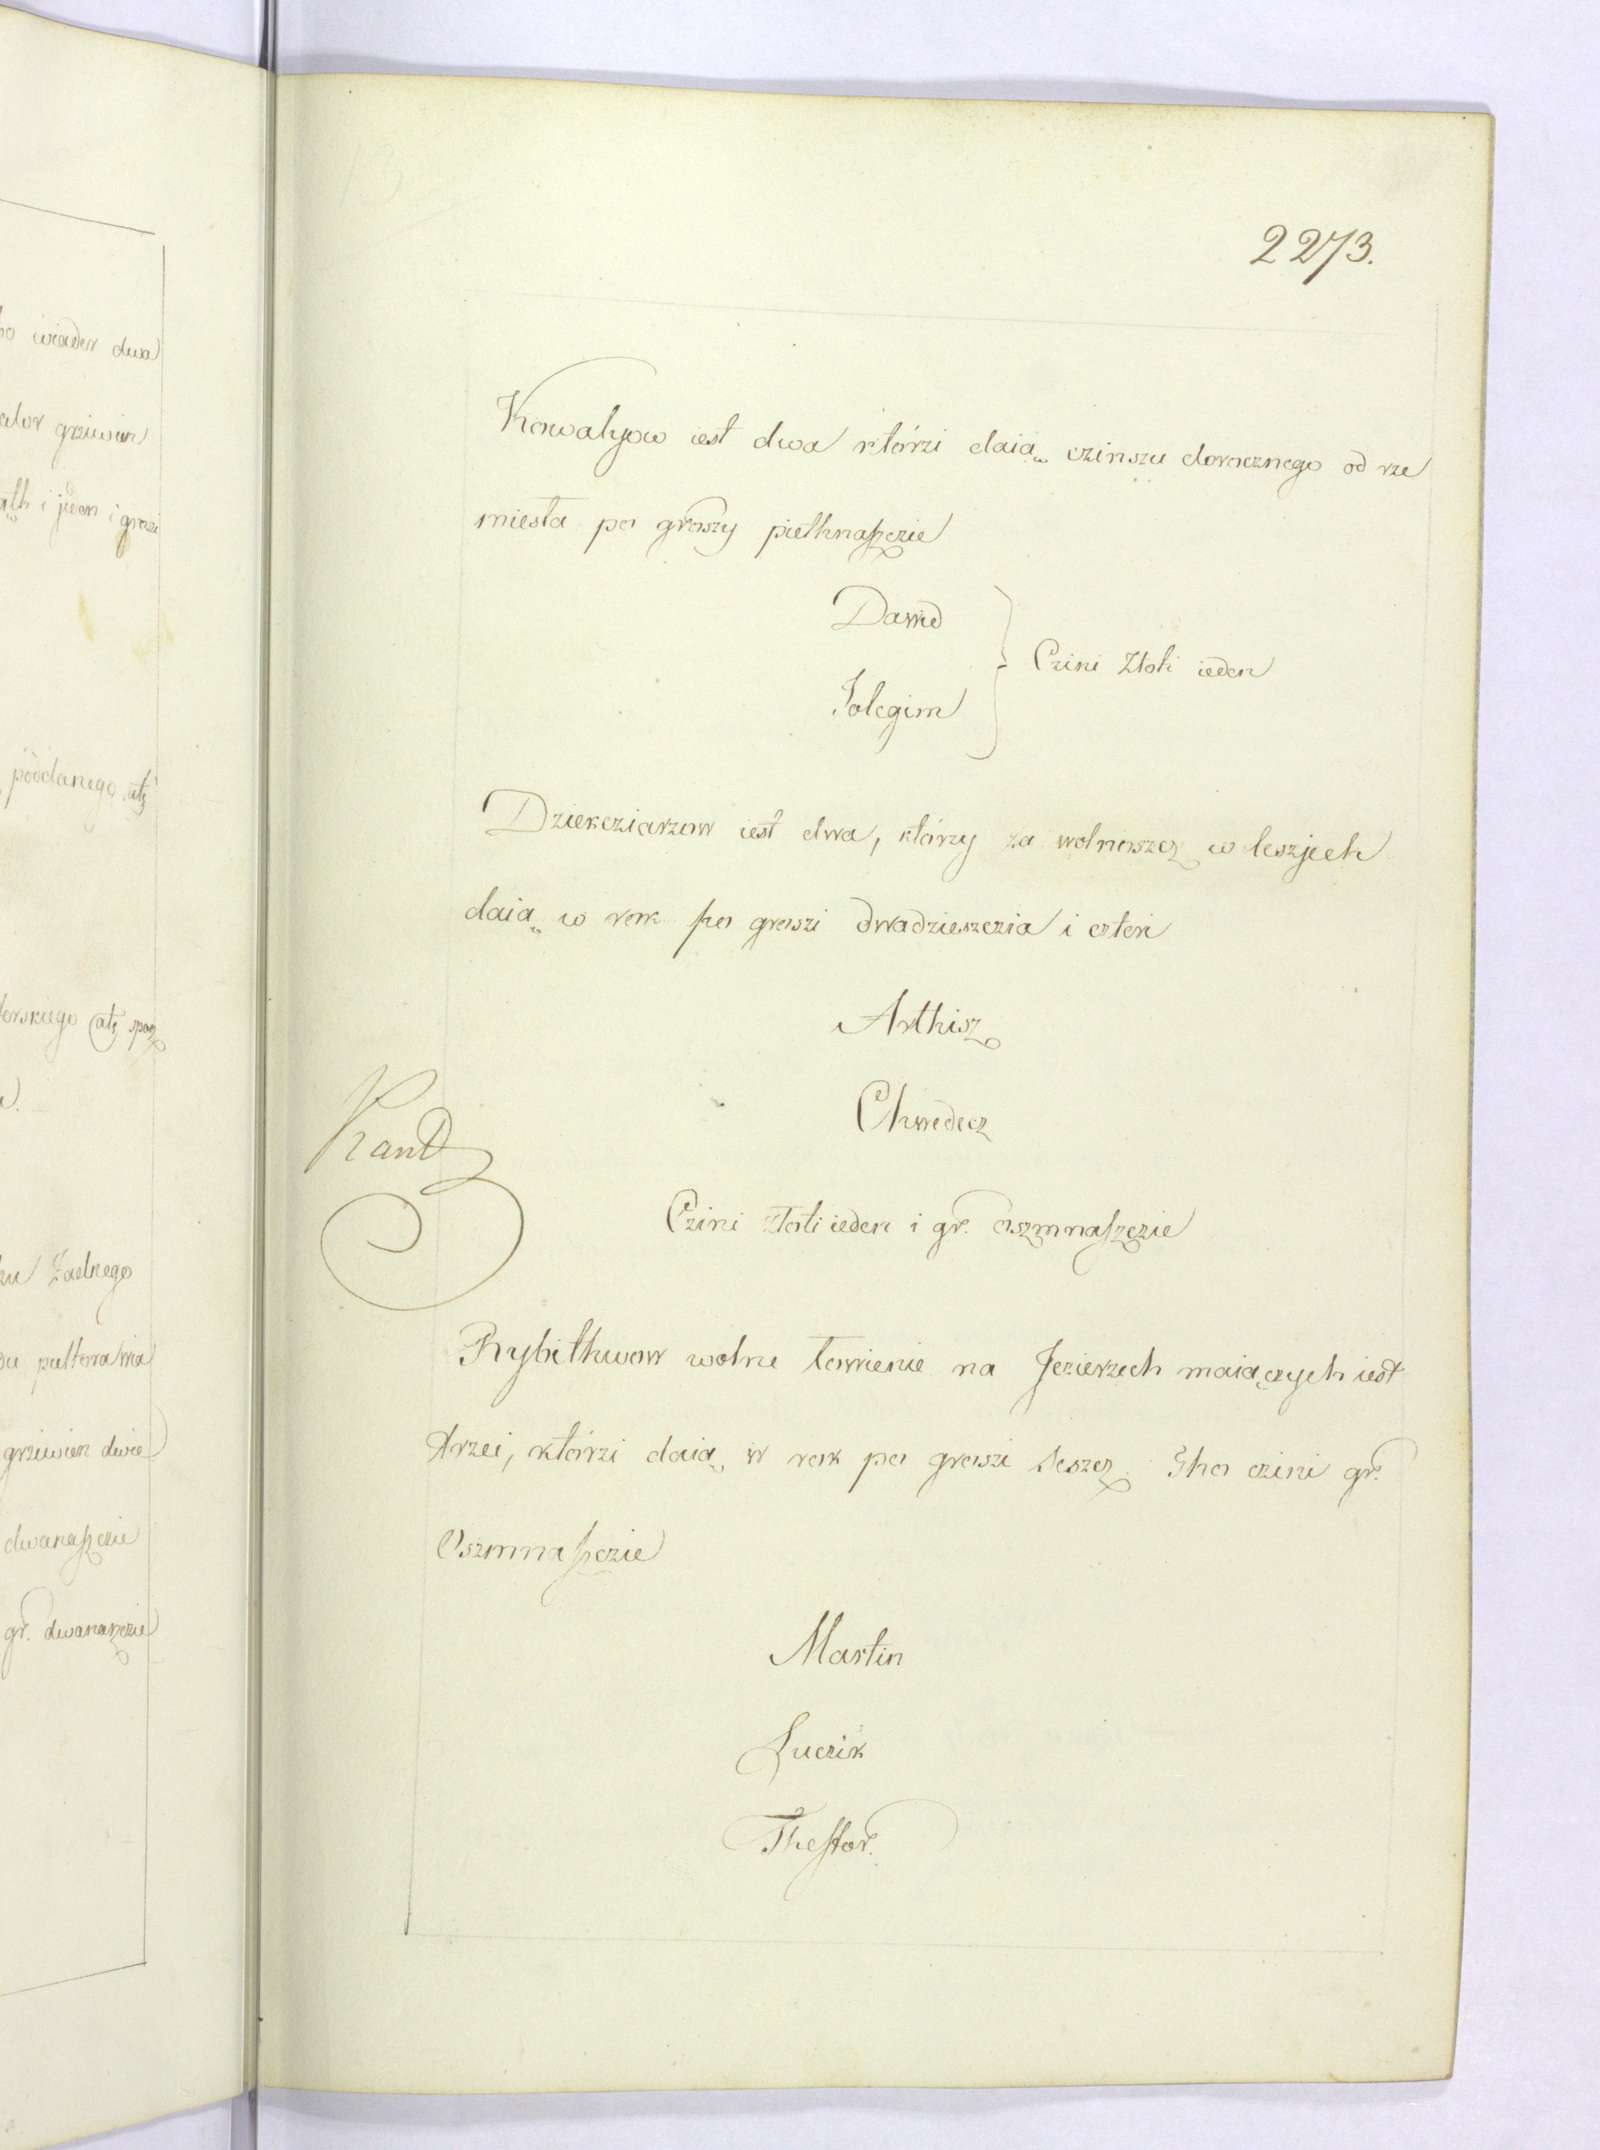 ho wiader dwa
grziwien
i grosi
poddanego
Żadnego
pułtora
grziwien dwie
dwanaſzczie
gr. dwanaszczie
2273.
Kowalyow iest dwa którzi daią czinszu dorocznego od rze
miesła po groszy piethnaſzczie
Dawid
Jolegim
Czini Złoti ieden
Dziekcziarzow iest dwa, którzy za wolnoszcz w leszjech
daią w rok po groszi dwadzieszczia i czteri
Arthisz
Chwedecz
Kand
Czini złoti ieden i gr. oszmnaſzczie
Rybithwow wolne łowienie na Jezierzech maiączych iest
trzei, którzi daią w rok po groszi szeszcz. Tho czini gr.
Oszmnaſzczie
Martin
Luczik
Theſtor.